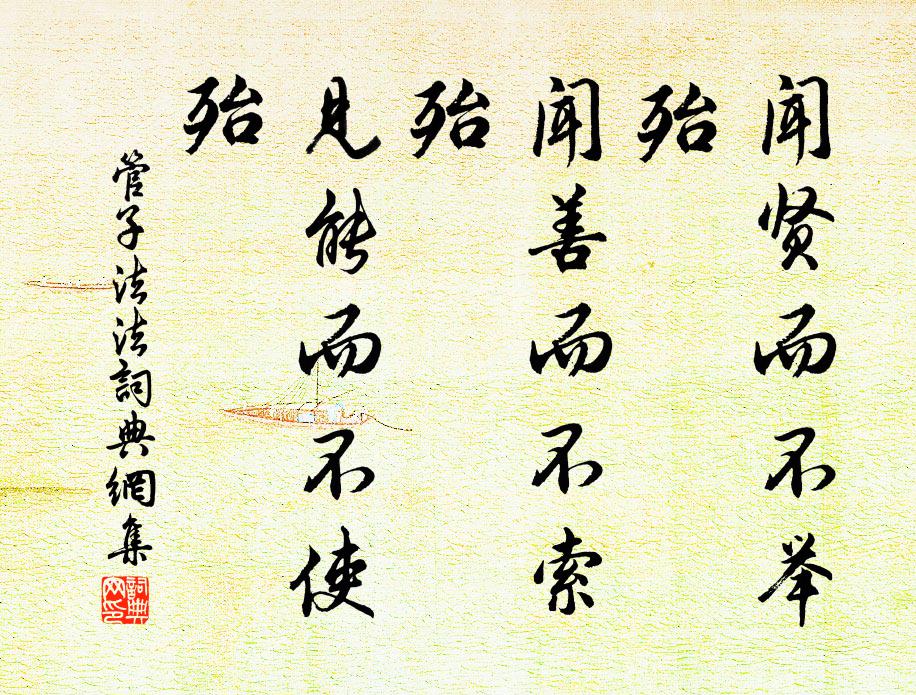 闻贤而不举
殆
闻善而不索
殆
见能而不使
殆
管子法法詞典網集
詞典网印